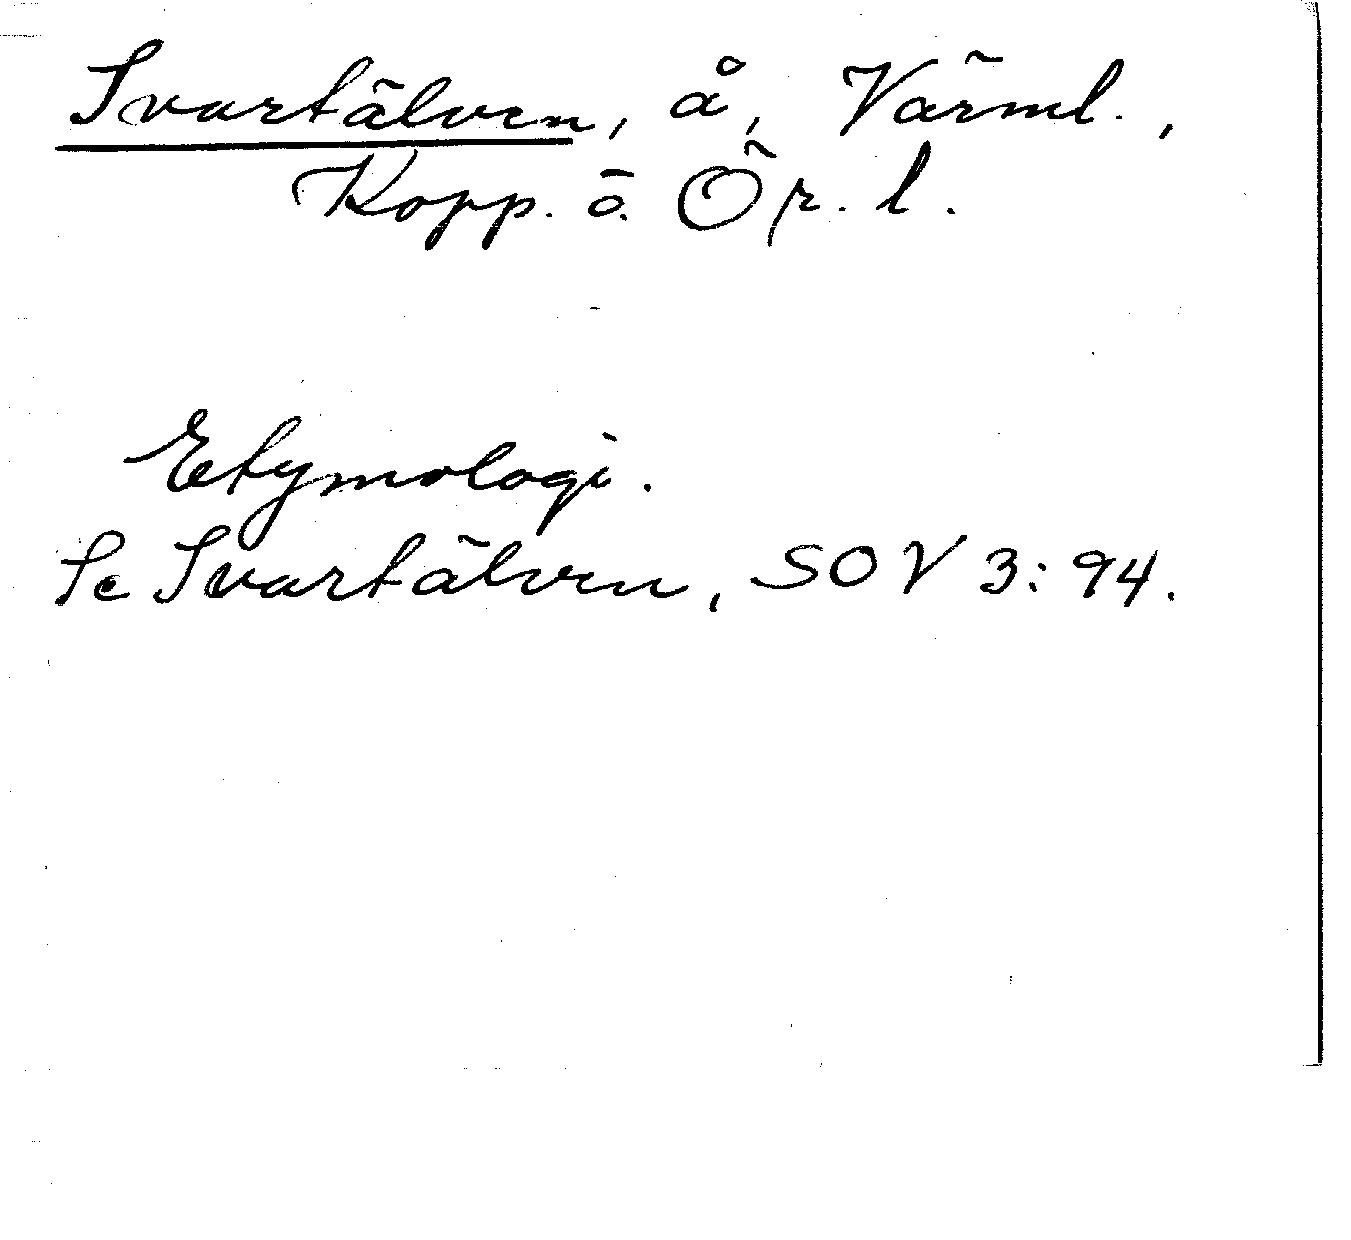 Svartälven, å, Värml.,
Kopp. ö. Ör. l.
Etymologi.
Se Svartälven, SOV 3:94.